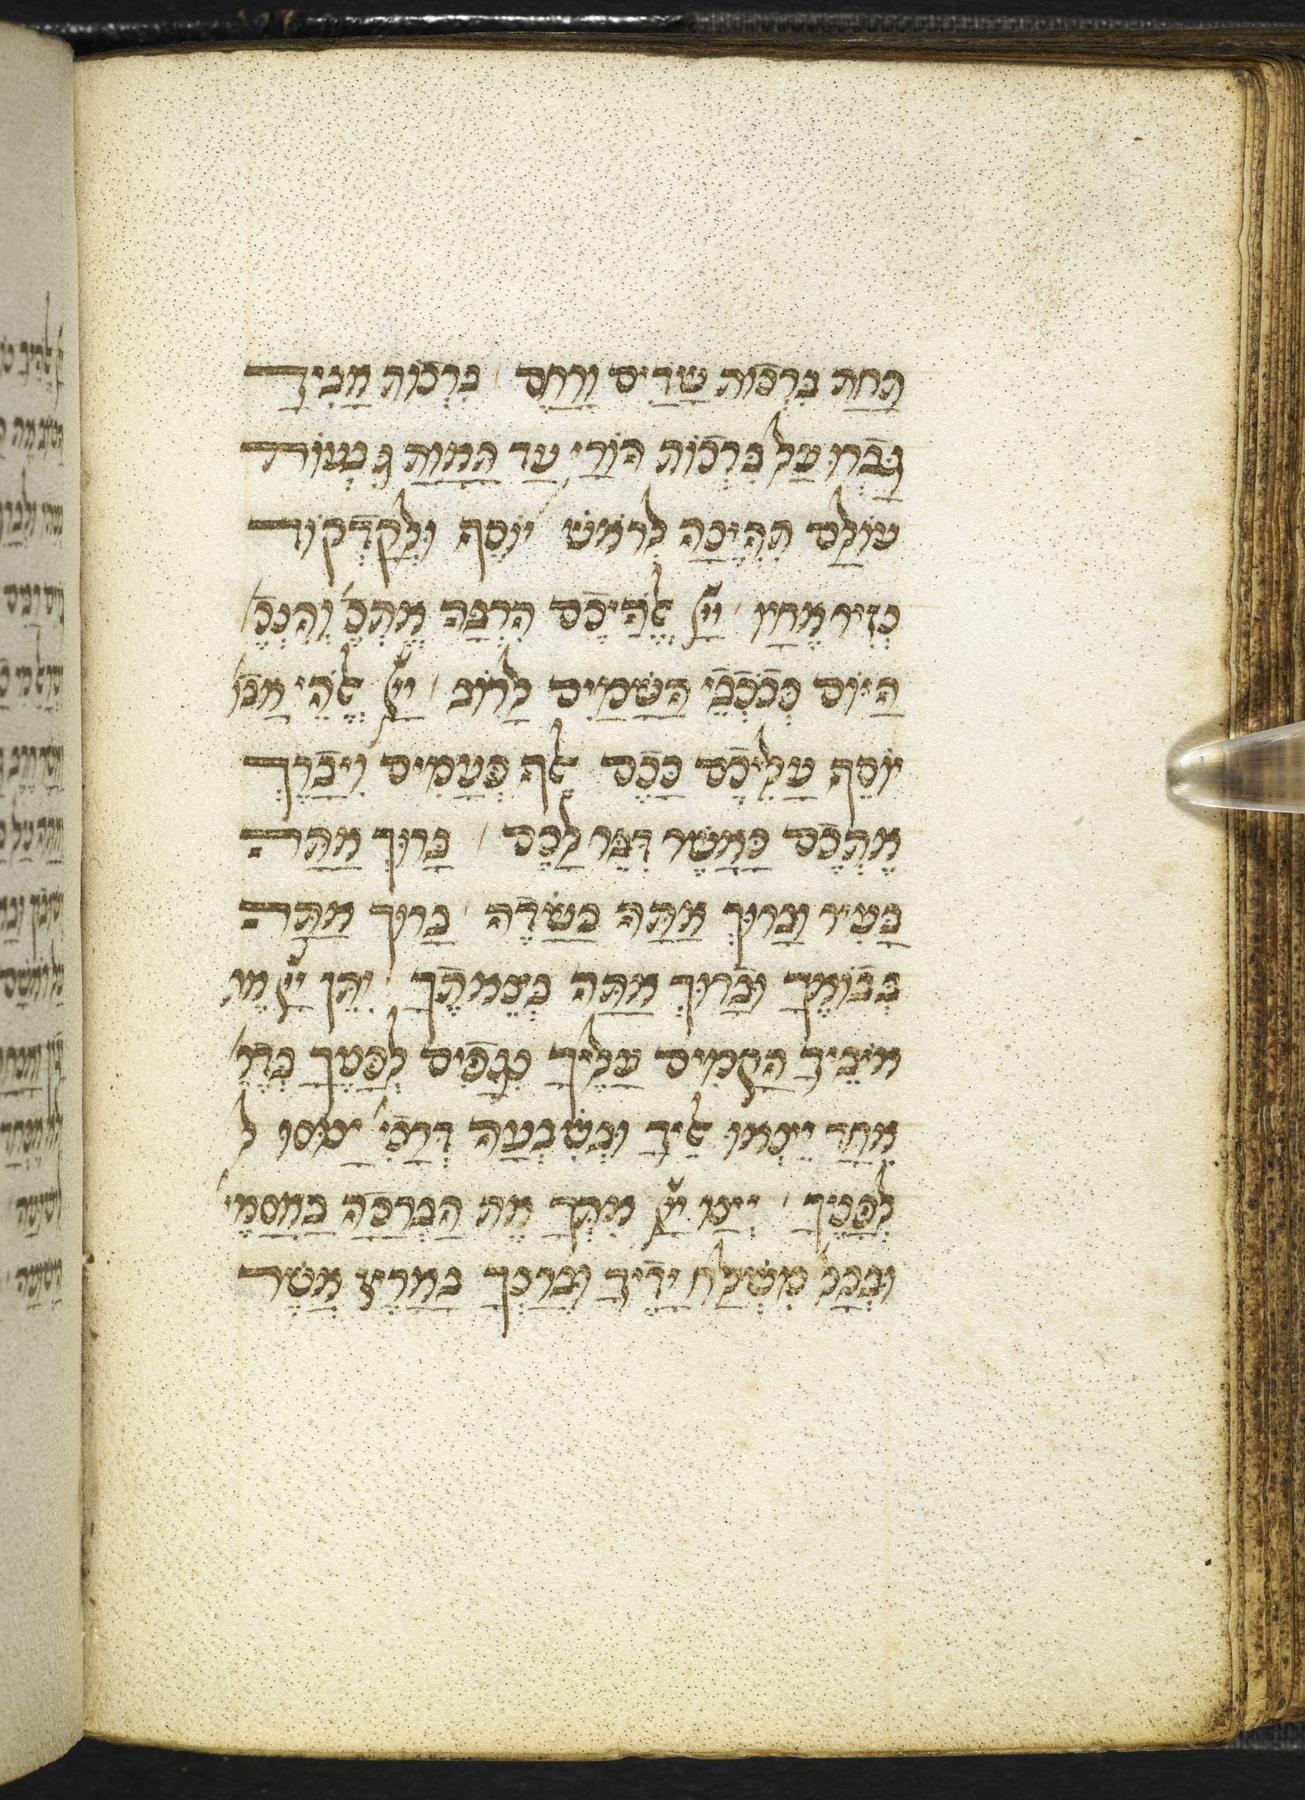 תָּחַת בִּרְכוֹת שָׁדַיִם וָרָחַם׳ בִּרְכוֹת אָבִיךָ
גָּבְרוּ עַל בִּרְכוֹת הוֹרַי עַד תַּאֲוַת גִּבְעוֹת
עוֹלָם תִּהְיֶינָה לְרֹאשׁ יוֹסֵף וּלְקָדְקֹוד
נְזִיר אֶחָיו׳ יְיָ אֱלֹהֵיכֶם הִרְבָּה אֶתְכֶ׳ וְהִנְּכֶ׳
הַיּוֹם כְּכֹכְבֵי הַשָּׁמַיִם לָרוֹב׳ יְיָ אֱלֹהֵי אֲבֹ׳
יוֹסֵף עֲלֵיכֶם כָּכֶם אֶלֶף פְּעָמִים וִיבָרֵךְ
אֶתְכֶם כַּאֲשֶׁר דִּבֶּר לָכֶם׳ בָּרוּךְ אַתָּה
בָּעִיר וּבָרוּךְ אַתָּה בַּשָּׂדֶה׳ בָּרוּךְ אַתָּה
בְּבוֹאֶךָ וּבָרוּךְ אַתָּה בְּצֵאתֶךָ׳ יִתֵּן יְיָ אֶת
אוֹיְבֶיךָ הַקָּמִים עָלֶיךָ נִגָּפִים לְפָנֶיךָ בְּדֶרֶ׳
אֶחָד יֵצְאוּ אֵלֶיךָ וּבְשִׁבְעָה דְרָכִי׳ יָנוּסוּ ל
לְפָנֶיךָ׳ יְצַו יְיָ אִתְּךָ אֶת הַבְּרָכָה בַּאֲסָמֶי׳
וּבְכָל מִשְׁלַח יָדֶיךָ וּבֵרַכְךָ בָּאָרֶץ אֲשֶׁר